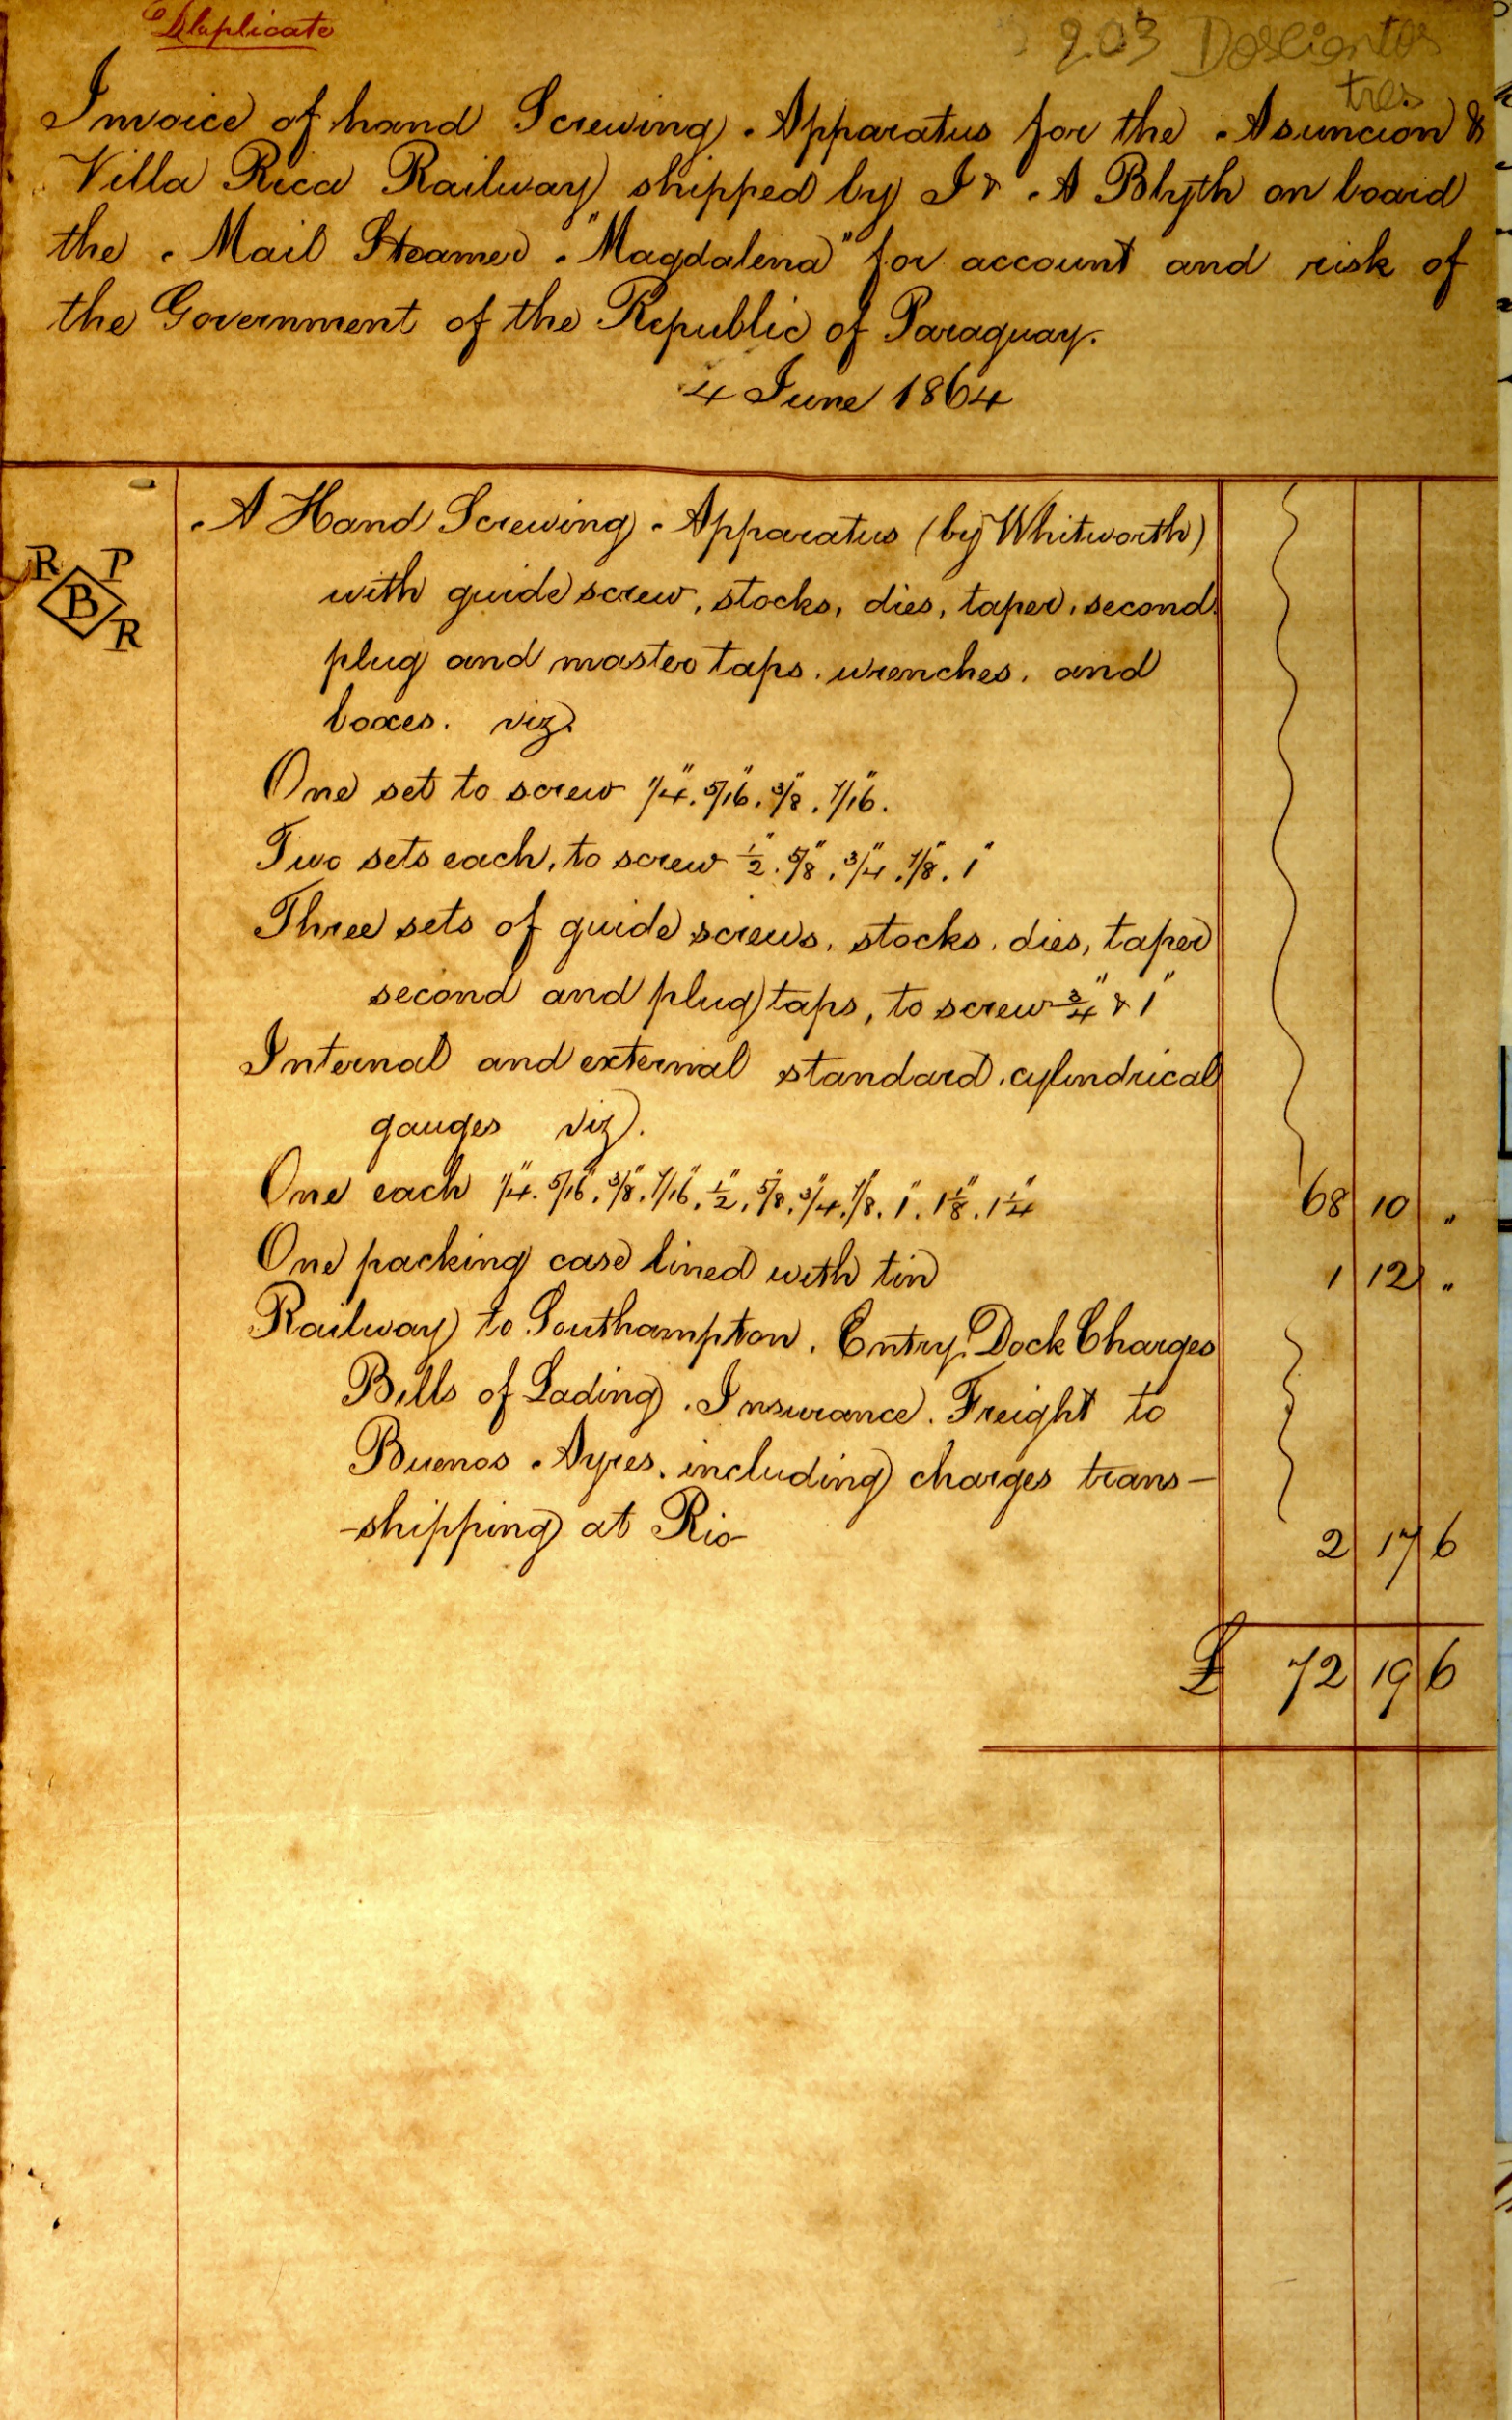 Duplicate
203 Doscientos
tres
Invoice of hand Screwing Apparatus for the Asuncion &
Villa Rica Railway shipped by J & A Blyth on board
the Mail Steamer "Magdalena" for account and risk of
the Government of the Republic of Paraguay.
4 June 1864
A Hand Screwing Apparatus (by Whitworth)
R P
B
R
with guide screw, stocks, dies, taper, second
plug and master taps, wrenches, and
boxes. viz.
One set to screw 1/4", 5/16", 3/8", 7/16".
Two sets each, to screw 1/2", 5/8", 3/4", 7/8", 1"
Three sets of guide screws, stocks, dies, taper
second and plug taps, to screw 3/4" & 1"
Internal and external standard cylindrical
gauges viz.
One each 1/4", 5/16", 3/8", 7/16", 1/2", 5/8", 3/4", 7/8", 1", 1 1/8", 1 1/4" 68 10 "
One packing case lined with tin 1 12 "
Railway to Southampton, Entry, Dock Charges
Bills of Lading, Insurance, Freight to
Buenos Ayres, including charges trans-
-shipping at Rio 2 17 6
£ 72 19 6